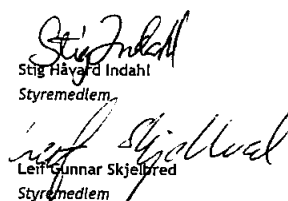 Stig Indahl
Stig Håvard Indahl
Styremedlem
Leif Skjelbred
Leif Gunnar Skjelbred
Styremedlem